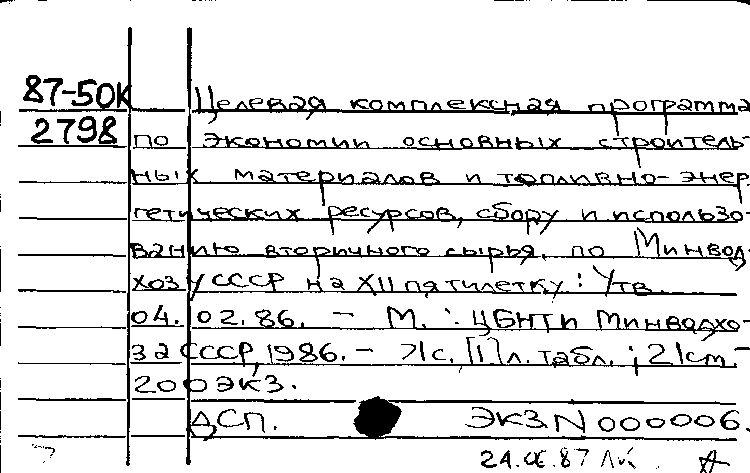 87-50К Целевая комплексная программа
2798 по экономии основных строитель-
ных материалов и топливно-энер
гетических ресурсов, сбору и использо-
ванию вторичного сырья, по Минвод-
хозу СССР на XII пятилетку: Утв.
04.02.86. – М.: ЦБНТИ Минводхо-
за СССР, 1986. – 71с. [1] л. табл.; 21 cm. –
200 экз.
ДСП. ЭКЗ N 000006.
87 ЛК